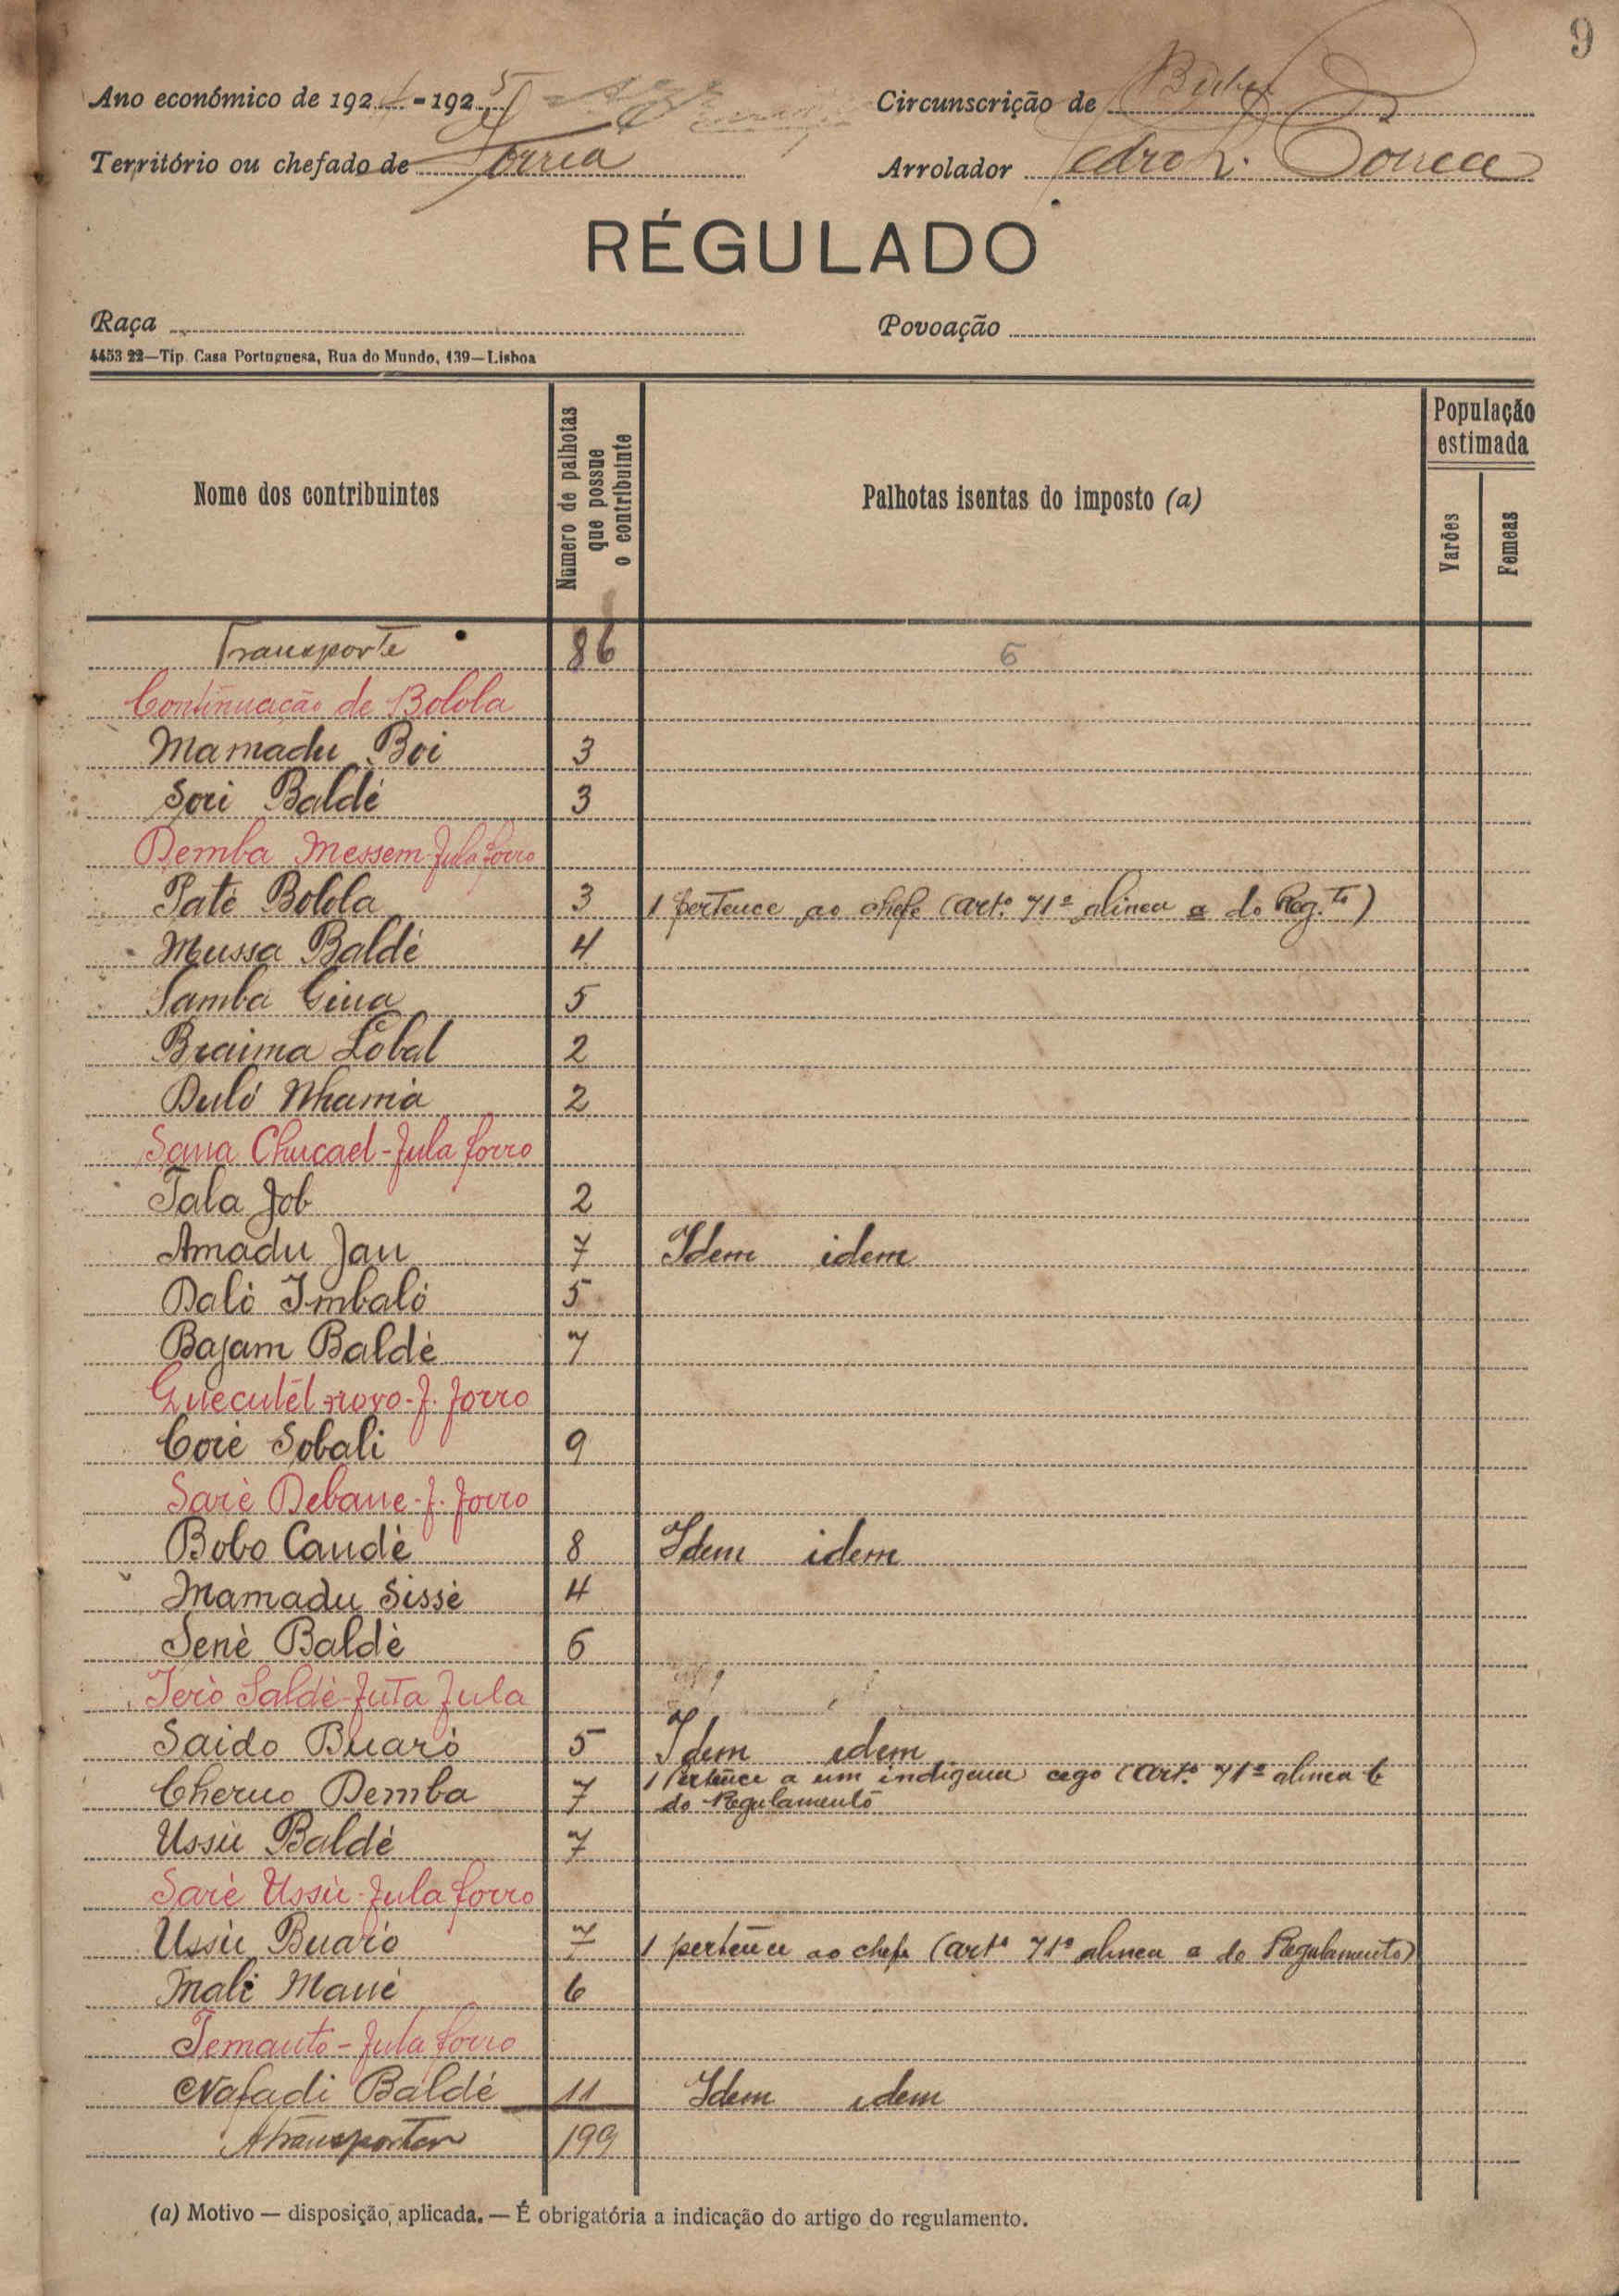 9
Ano económico de 192 - 1925 Circunscrição de
Território ou chefado de Forriá Arrolador Pedro
RÉGULADO
Raça Povoação
4453 22—Tip. Casa Portuguesa, Rua do Mundo, 139—Lisboa
Nome dos contribuintes
Número de palhotas que possue o contribuinte
Palhotas isentas do imposto (a)
População estimada
Varões
Femeas
Transporte 86 6
Continuação de Bolola
Mamadu Boi 3
Sori Baldé 3
Demba Messem - fula forro
Paté Bolola 3 1 pertence ao chefe (artº 71º alinea a do Reg.to)
Mussa Baldé 4
Samba 5
Braima Lobal 2
Duló Nhamá 2
Sana Chucael - fula forro
Tala Job 2
Amadu Jau 7 Idem idem
Daló Imbaló 5
Bajam Baldé 7
Guecutél novo - f. forro
Coié Sobali 9
Saré Debane - f. forro
Bobo Candé 8 Idem idem
Mamadu Sissé 4
Sené Baldé 6
Saldé - futa fula
Saido Buaró 5 Idem idem
Cherno Demba 7 1 Pertence a um indigena cego (Artº 71º alinea b
do Regulamento
Ussú Baldé 7
Saré Ussú - fula forro
Ussú Buaró 7 1 pertence ao chefe (artº 71º alinea a do Regulamento)
Mali Mané 6
Temanto - fula forro
Nafadi Baldé 11 Idem idem
A transportar 199
(a) Motivo — disposição aplicada. — É obrigatória a indicação do artigo do regulamento.